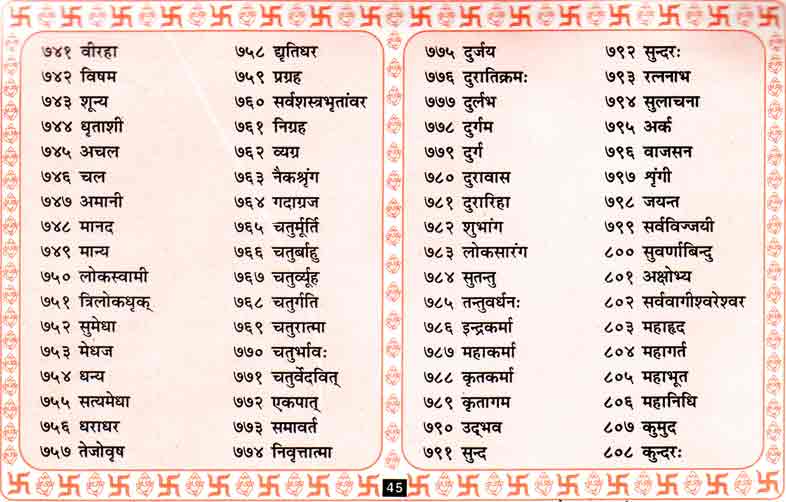 ७४१ वीरहा
७४२ विषम
७४३ शून्य
७४४ धृताशी
७४५ अचल
७४६ चल
७४७ अमानी
७४८ मानद
७४९ मान्य
७५० लोकस्वामी
७५१ त्रिलोकधृक्
७५२ सुमेधा
७५३ मेधज
७५४ धन्य
७५५ सत्यमेधा
७५६ धराधर
७५७ तेजोवृष
७५८ द्युतिधर
७५९ प्रग्रह
७६० सर्वशस्त्रभृतांवर
७६१ निग्रह
७६२ व्यग्र
७६३ नैकश्रृंग
७६४ गदाग्रज
७६५ चतुर्मूर्ति
७६६ चतुर्बाहु
७६७ चतुर्व्यूह
७६८ चतुर्गति
७६९ चतुरात्मा
७७० चतुर्भावः
७७१ चतुर्वेदवित्
७७२ एकपात्
७७३ समावर्त
७७४ निवृत्तात्मा
७७५ दुर्जय
७७६ दुरातिक्रमः
७७७ दुर्लभ
७७८ दुर्गम
७७९ दुर्ग
७८० दुरावास
७८१ दुरारिहा
७८२ शुभांग
७८३ लोकसारंग
७८४ सुतन्तु
७८५ तन्तुवर्धनः
७८६ इन्द्रकर्मा
७८७ महाकर्मा
७८८ कृतकर्मा
७८९ कृतागम
७९० उद्भव
७९१ सुन्द
७९२ सुन्दरः
७९३ रत्ननाभ
७९४ सुलाचना
७९५ अर्क
७९६ वाजसन
७९७ शृंगी
७९८ जयन्त
७९९ सर्वविज्जयी
८०० सुवर्णाबिन्दु
८०१ अक्षोभ्य
८०२ सर्ववागीश्वरेश्वर
८०३ महाहृद
८०४ महागर्त
८०५ महाभूत
८०६ महानिधि
८०७ कुमुद
८०८ कुन्दरः
45